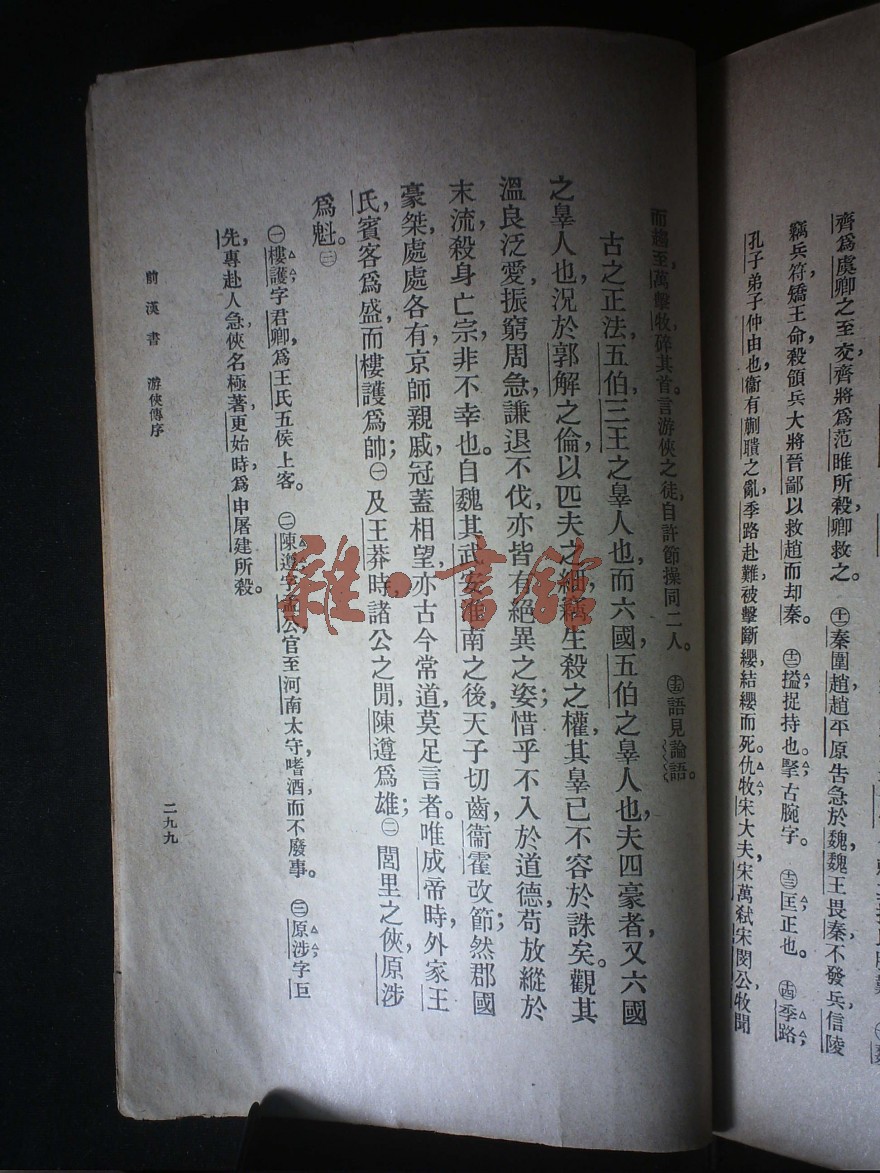 齊爲虞卿之至交，齊將爲范雎所殺，卿救之。 ㊉秦圍趙，趙平原告急於魏，魏王畏秦不發兵，信陵
竊兵符，矯王命，殺領兵大將晉鄙以救趙而却秦。 搤，捉持也。掔，古腕字。 匡，正也。 季路，
孔子弟子仲由也，衞有蒯聵之亂，季路赴難，被擊斷纓，結纓而死。仇牧，宋大夫，宋萬弒宋閔公，牧聞
而趨至，萬擊牧，碎其首。言游俠之徒，自許節操同二人。 語見論語。
古之正法，五伯，三王之辠人也，而六國，五伯之辠人也，夫四豪者，又六國
之辠人也，況於郭解之倫，以匹夫之細，竊生殺之權，其辠已不容於誅矣。觀其
溫良泛愛，振窮周急，謙退不伐，亦皆有絕異之姿；惜乎不入於道德，苟放縱於
末流，殺身亡宗，非不幸也。自魏其武安淮南之後，天子切齒，衞霍改節，然郡國
豪桀，處處各有，京師親戚，冠蓋相望，亦古今常道，莫足言者。唯成帝時，外家王
氏，賓客爲盛，而樓護爲帥；㊀及王莽時，諸公之閒，陳遵爲雄；㊁閭里之俠，原涉
爲魁。㊂
㊀樓護，字君卿，爲王氏五侯上客。 ㊁陳遵，字孟公，官至河南太守，嗜酒，而不廢事。 ㊂原涉，字巨
先，專赴人急，俠名極著，更始時，爲申屠建所殺。
前漢書 游俠傳序
二九九
雜·書館